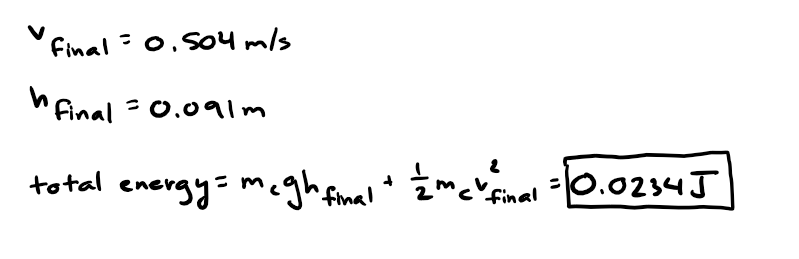 v_final = 0.504 m/s
h_final = 0.091m
total energy = m_c g h_final + 1/2 m_c v_final^2 = 0.0234 J